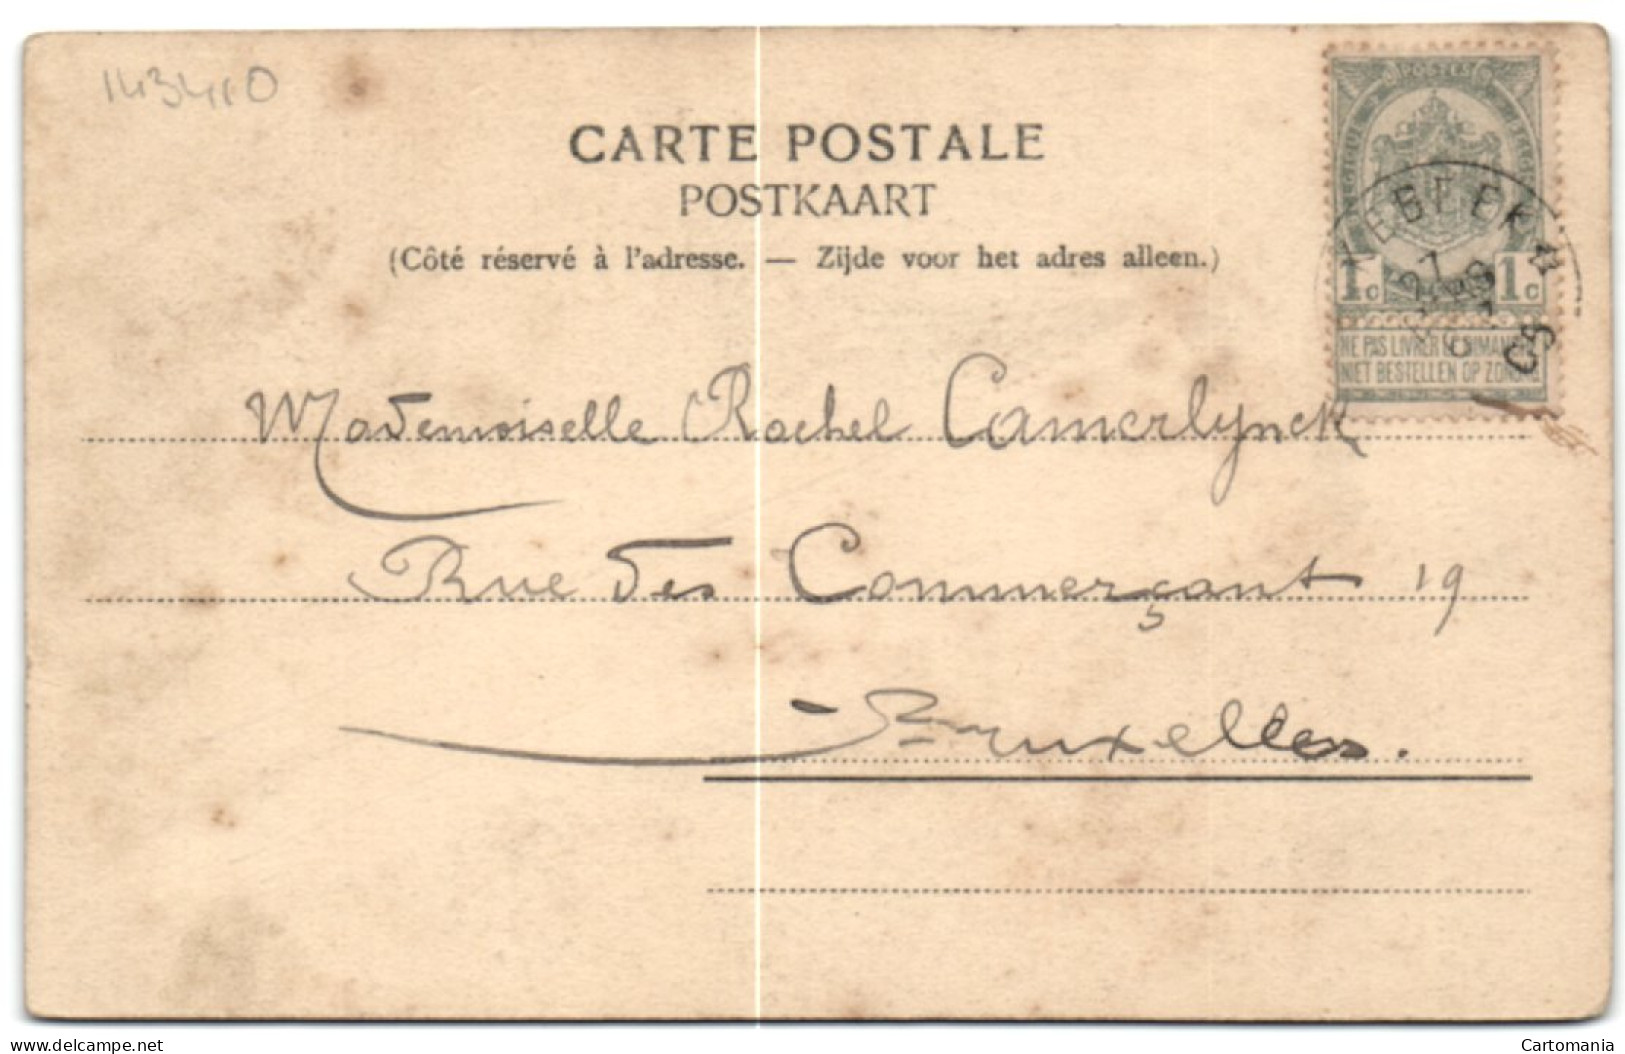 143410
CARTE POSTALE
POSTKAART
(Côté réservé à l'adresse. — Zijde voor het adres alleen.)
POSTES
1c 1c
NE PAS LIVRER LE DIMANCHE
NIET BESTELLEN OP ZONDAG
Mademoiselle Rachel Camerlynck
Rue des Commerçant 19
Bruxelles.
www.delcampe.net
Cartomania